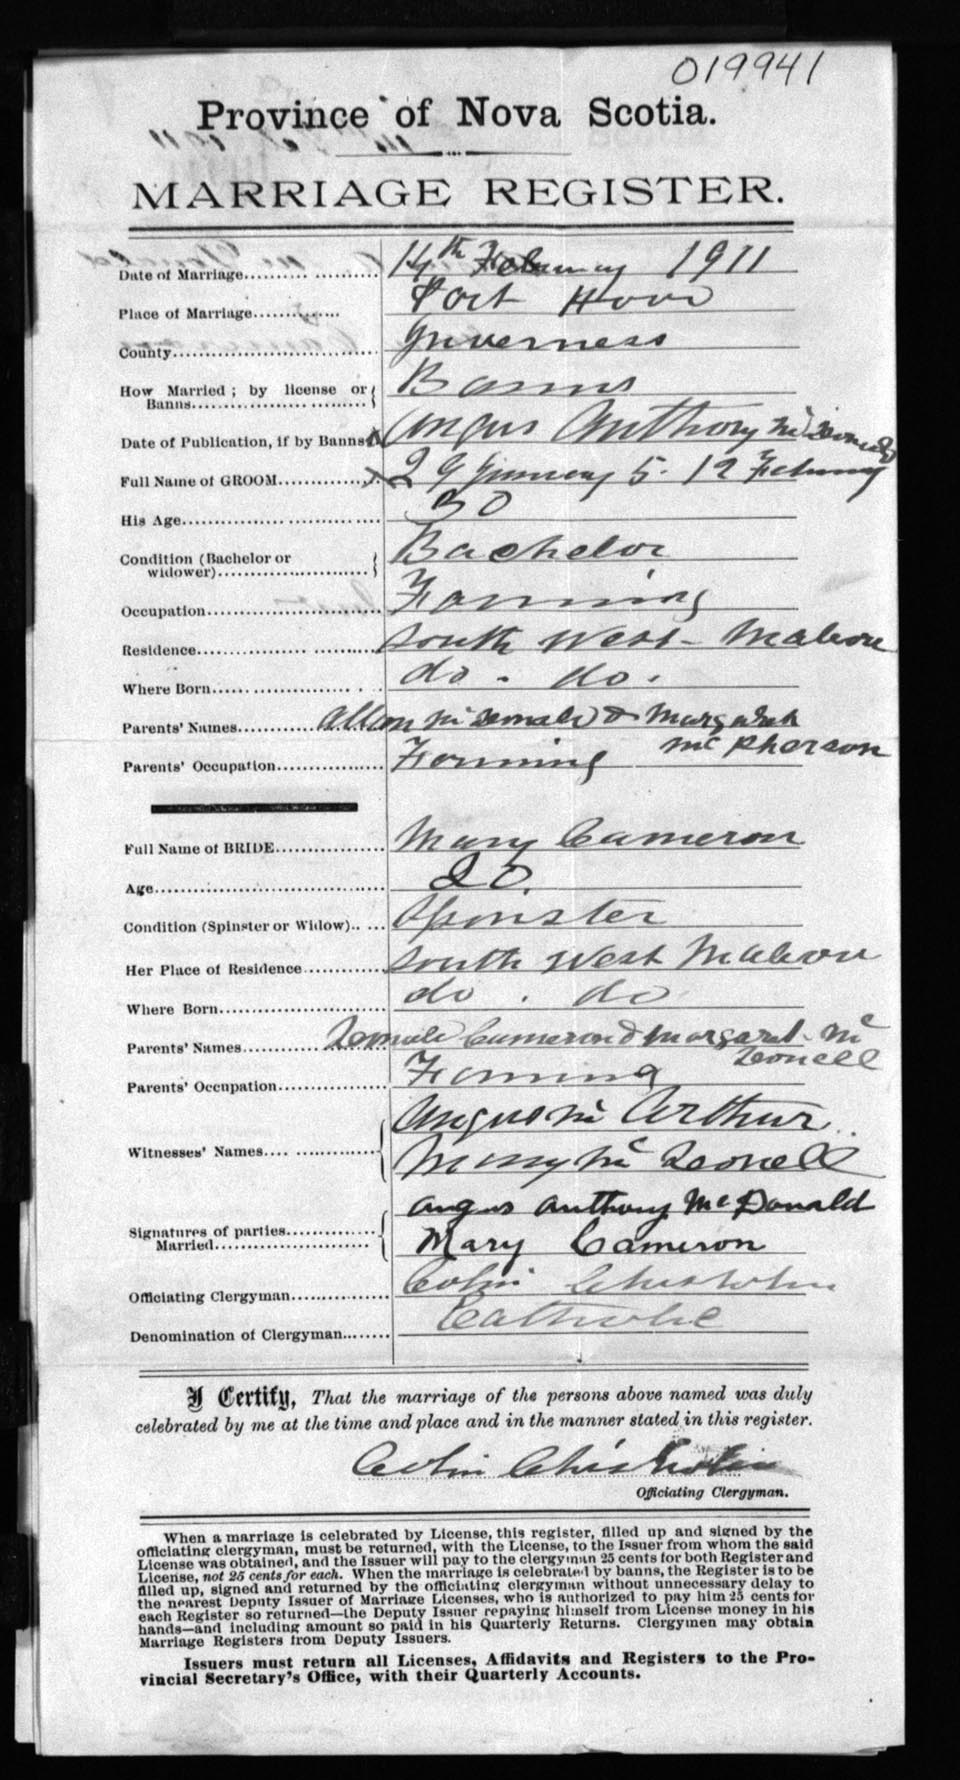 019941
Province of Nova Scotia.
MARRIAGE REGISTER.
Date of Marriage 14th February 1911
Place of Marriage Port Hood
County Inverness
How Married; by license or Banns Banns
Date of Publication, if by Banns Angus Anthony Mc Donald
Full Name of GROOM x 29 January 5. 12 February
His Age 30
Condition (Bachelor or widower) Bachelor
Occupation Farming
Residence South West Mabou
Where Born do. do.
Parents' Names Allan Mc Donald & Margaret
Mc Pherson
Parents' Occupation Farming
Full Name of BRIDE Mary Cameron
Age 20.
Condition (Spinster or Widow) Spinster
Her Place of Residence South West Mabou
Where Born do. do
Parents' Names Donald Cameron & Margaret Mc
Donell
Parents' Occupation Farming
Witnesses' Names Angus Mc Arthur
Mary Mc Donell
Signatures of parties Married Angus Anthony McDonald
Mary Cameron
Officiating Clergyman Colin Chisholm
Denomination of Clergyman Catholic
I Certify, That the marriage of the persons above named was duly
celebrated by me at the time and place and in the manner stated in this register.
Colin Chisholm
Officiating Clergyman.
When a marriage is celebrated by License, this register, filled up and signed by the
officiating clergyman, must be returned, with the License, to the Issuer from whom the said
License was obtained, and the Issuer will pay to the clergyman 25 cents for both Register and
License, not 25 cents for each. When the marriage is celebrated by banns, the Register is to be
filled up, signed and returned by the officiating clergyman without unnecessary delay to
the nearest Deputy Issuer of Marriage Licenses, who is authorized to pay him 25 cents for
each Register so returned—the Deputy Issuer repaying himself from License money in his
hands—and including amount so paid in his Quarterly Returns. Clergymen may obtain
Marriage Registers from Deputy Issuers.
Issuers must return all Licenses, Affidavits and Registers to the Pro-
vincial Secretary's Office, with their Quarterly Accounts.